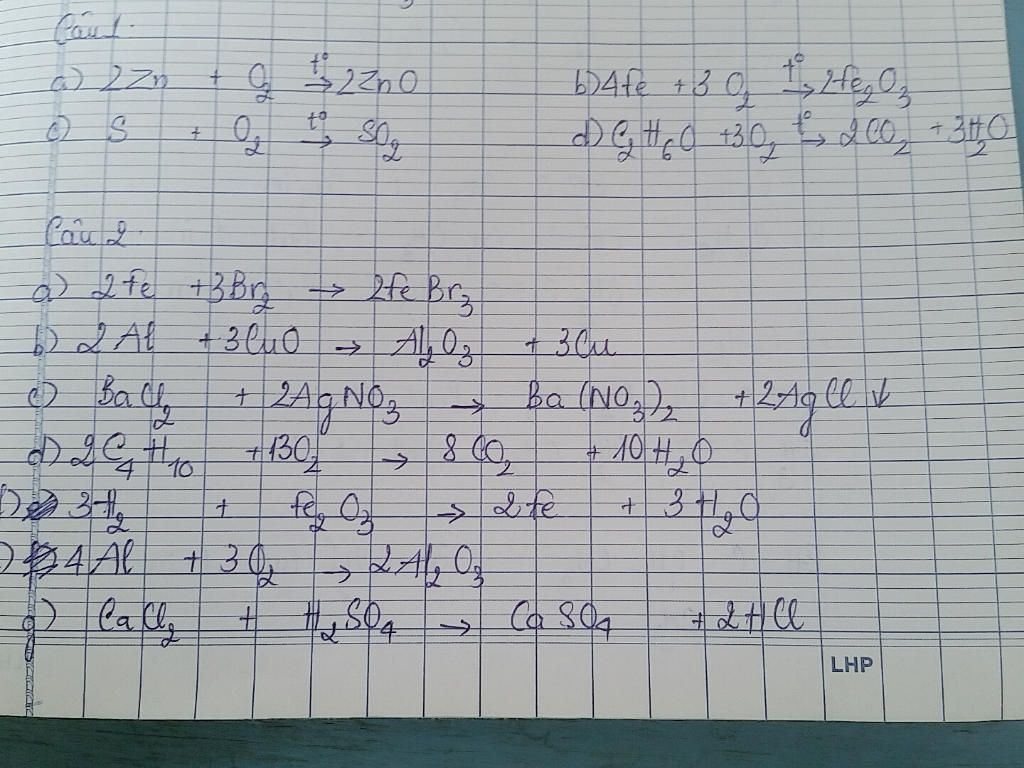 Câu 1.
a) 2Zn + O₂ →(t°) 2ZnO b) 4Fe + 3O₂ →(t°) 2Fe₂O₃
c) S + O₂ →(t°) SO₂ d) C₂H₆O + 3O₂ →(t°) 2CO₂ + 3H₂O
Câu 2.
a) 2Fe + 3Br₂ → 2FeBr₃
b) 2Al + 3CuO → Al₂O₃ + 3Cu
c) BaCl₂ + 2AgNO₃ → Ba(NO₃)₂ + 2AgCl ↓
d) 2C₄H₁₀ + 13O₂ → 8CO₂ + 10H₂O
3H₂ + Fe₂O₃ → 2Fe + 3H₂O
4Al + 3O₂ → 2Al₂O₃
g) CaCl₂ + H₂SO₄ → CaSO₄ + 2HCl
LHP